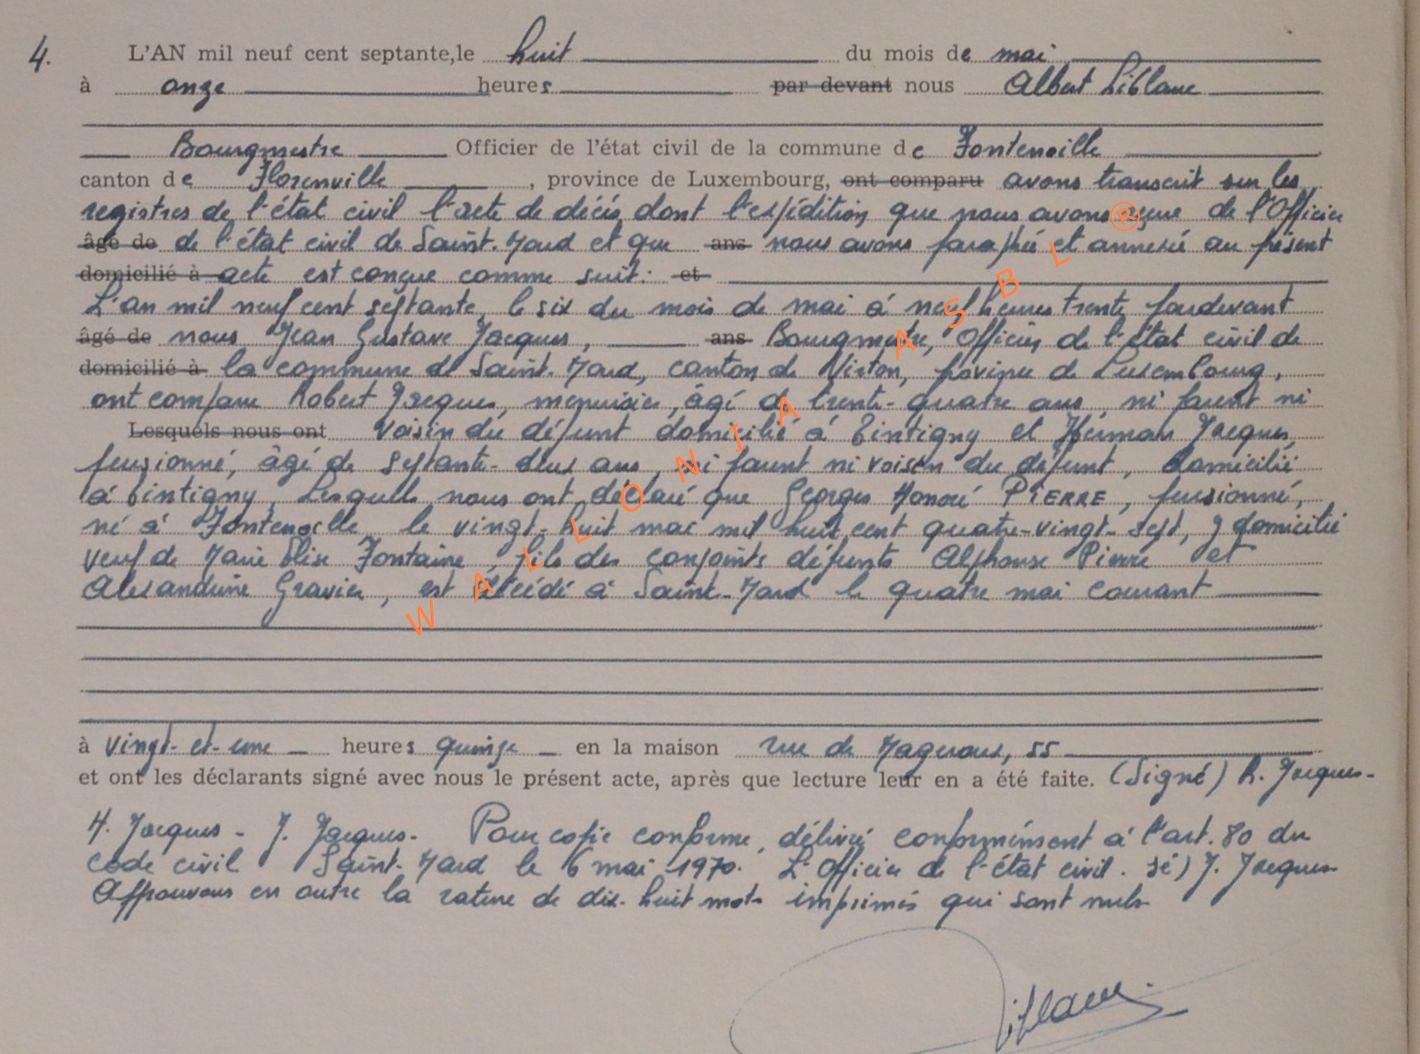 4. L'AN mil neuf cent septante, le huit du mois de mai
à onze heures par devant nous Albert Liblanc
Bourgmestre Officier de l'état civil de la commune de Fontenoille
canton de Florenville, province de Luxembourg, ont comparu avons transcrit sur les
registres de l'état civil l'acte de décès, dont l'expédition, que nous avons reçue de l'Officier
âgé de de l'état civil de Saint-Mard et que ans nous avons paraphée et annexée au présent
domicilié à acte est conçue comme suit: et
L'an mil neuf cent septante, le six du mois de mai à neuf heures trente pardevant
âgé de nous Jean Gustave Jacques, ans Bourgmestre, Officier de l'état civil de
domicilié à la commune de Saint-Mard, canton de Virton, province de Luxembourg,
ont comparu Robert Jacques, menuisier, âgé de trente-quatre ans, ni parent ni
Lesquels nous ont voisin du défunt domicilié à Tintigny et Herman Jacques,
pensionné, âgé de septante-deux ans, ni parent ni voisin du défunt, domicilié
à Tintigny, Lesquels nous ont déclaré que Georges Honoré PIERRE, pensionné,
né à Fontenoille le vingt-huit mai mil huit cent quatre-vingt-sept, y domicilié
veuf de Marie Elise Fontaine, fils des conjoints défunts Alphonse Pierre et
Alexandrine Gravier, est décédé à Saint-Mard le quatre mai courant
à vingt-et-une heures quinze en la maison rue de 55
et ont les déclarants signé avec nous le présent acte, après que lecture leur en a été faite. (Signé) R. Jacques-
H. Jacques - J. Jacques. Pour copie conforme, délivrée conformément à l'art. 80 du
code civil Saint-Mard le 6 mai 1970. L'Officier de l'état civil. sé) J. Jacques
Approuvons en outre la rature de dix-huit mots imprimés qui sont nuls
Liblanc
WALLONIA ASBL ®